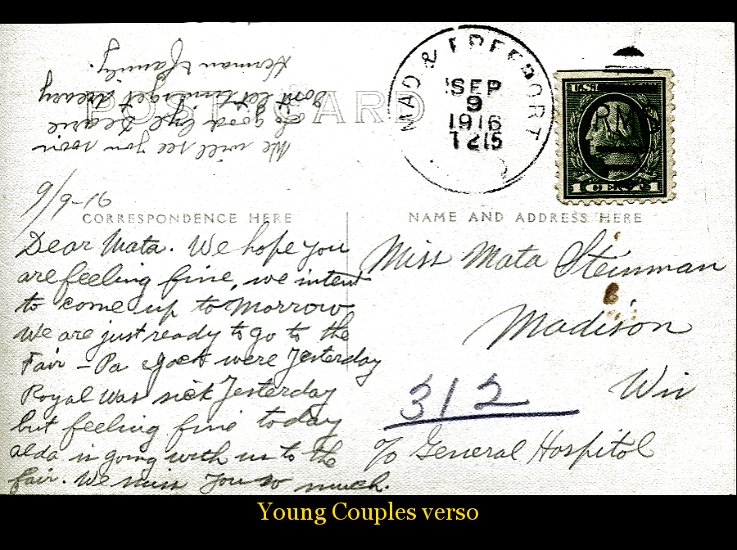 POST CARD
MAD & FREEPORT
SEP
9
1916
1215
RM
U.S.
1 CENT 1
9/9-16
CORRESPONDENCE HERE
NAME AND ADDRESS HERE
Dear Mata. We hope you
are feeling fine, we intend
to come up to morrow
We are just ready to go to the
Fair - Pa were Yesterday
Royal was sick Yesterday
but feeling fine today
alda is going with us to the
fair. We miss You so much.
We will see you
so good bye Dearie
Dont let time get dreary
Herman & family.
Miss Mata Steinman
Madison
Wis
312
c/o General Hospitol
Young Couples verso